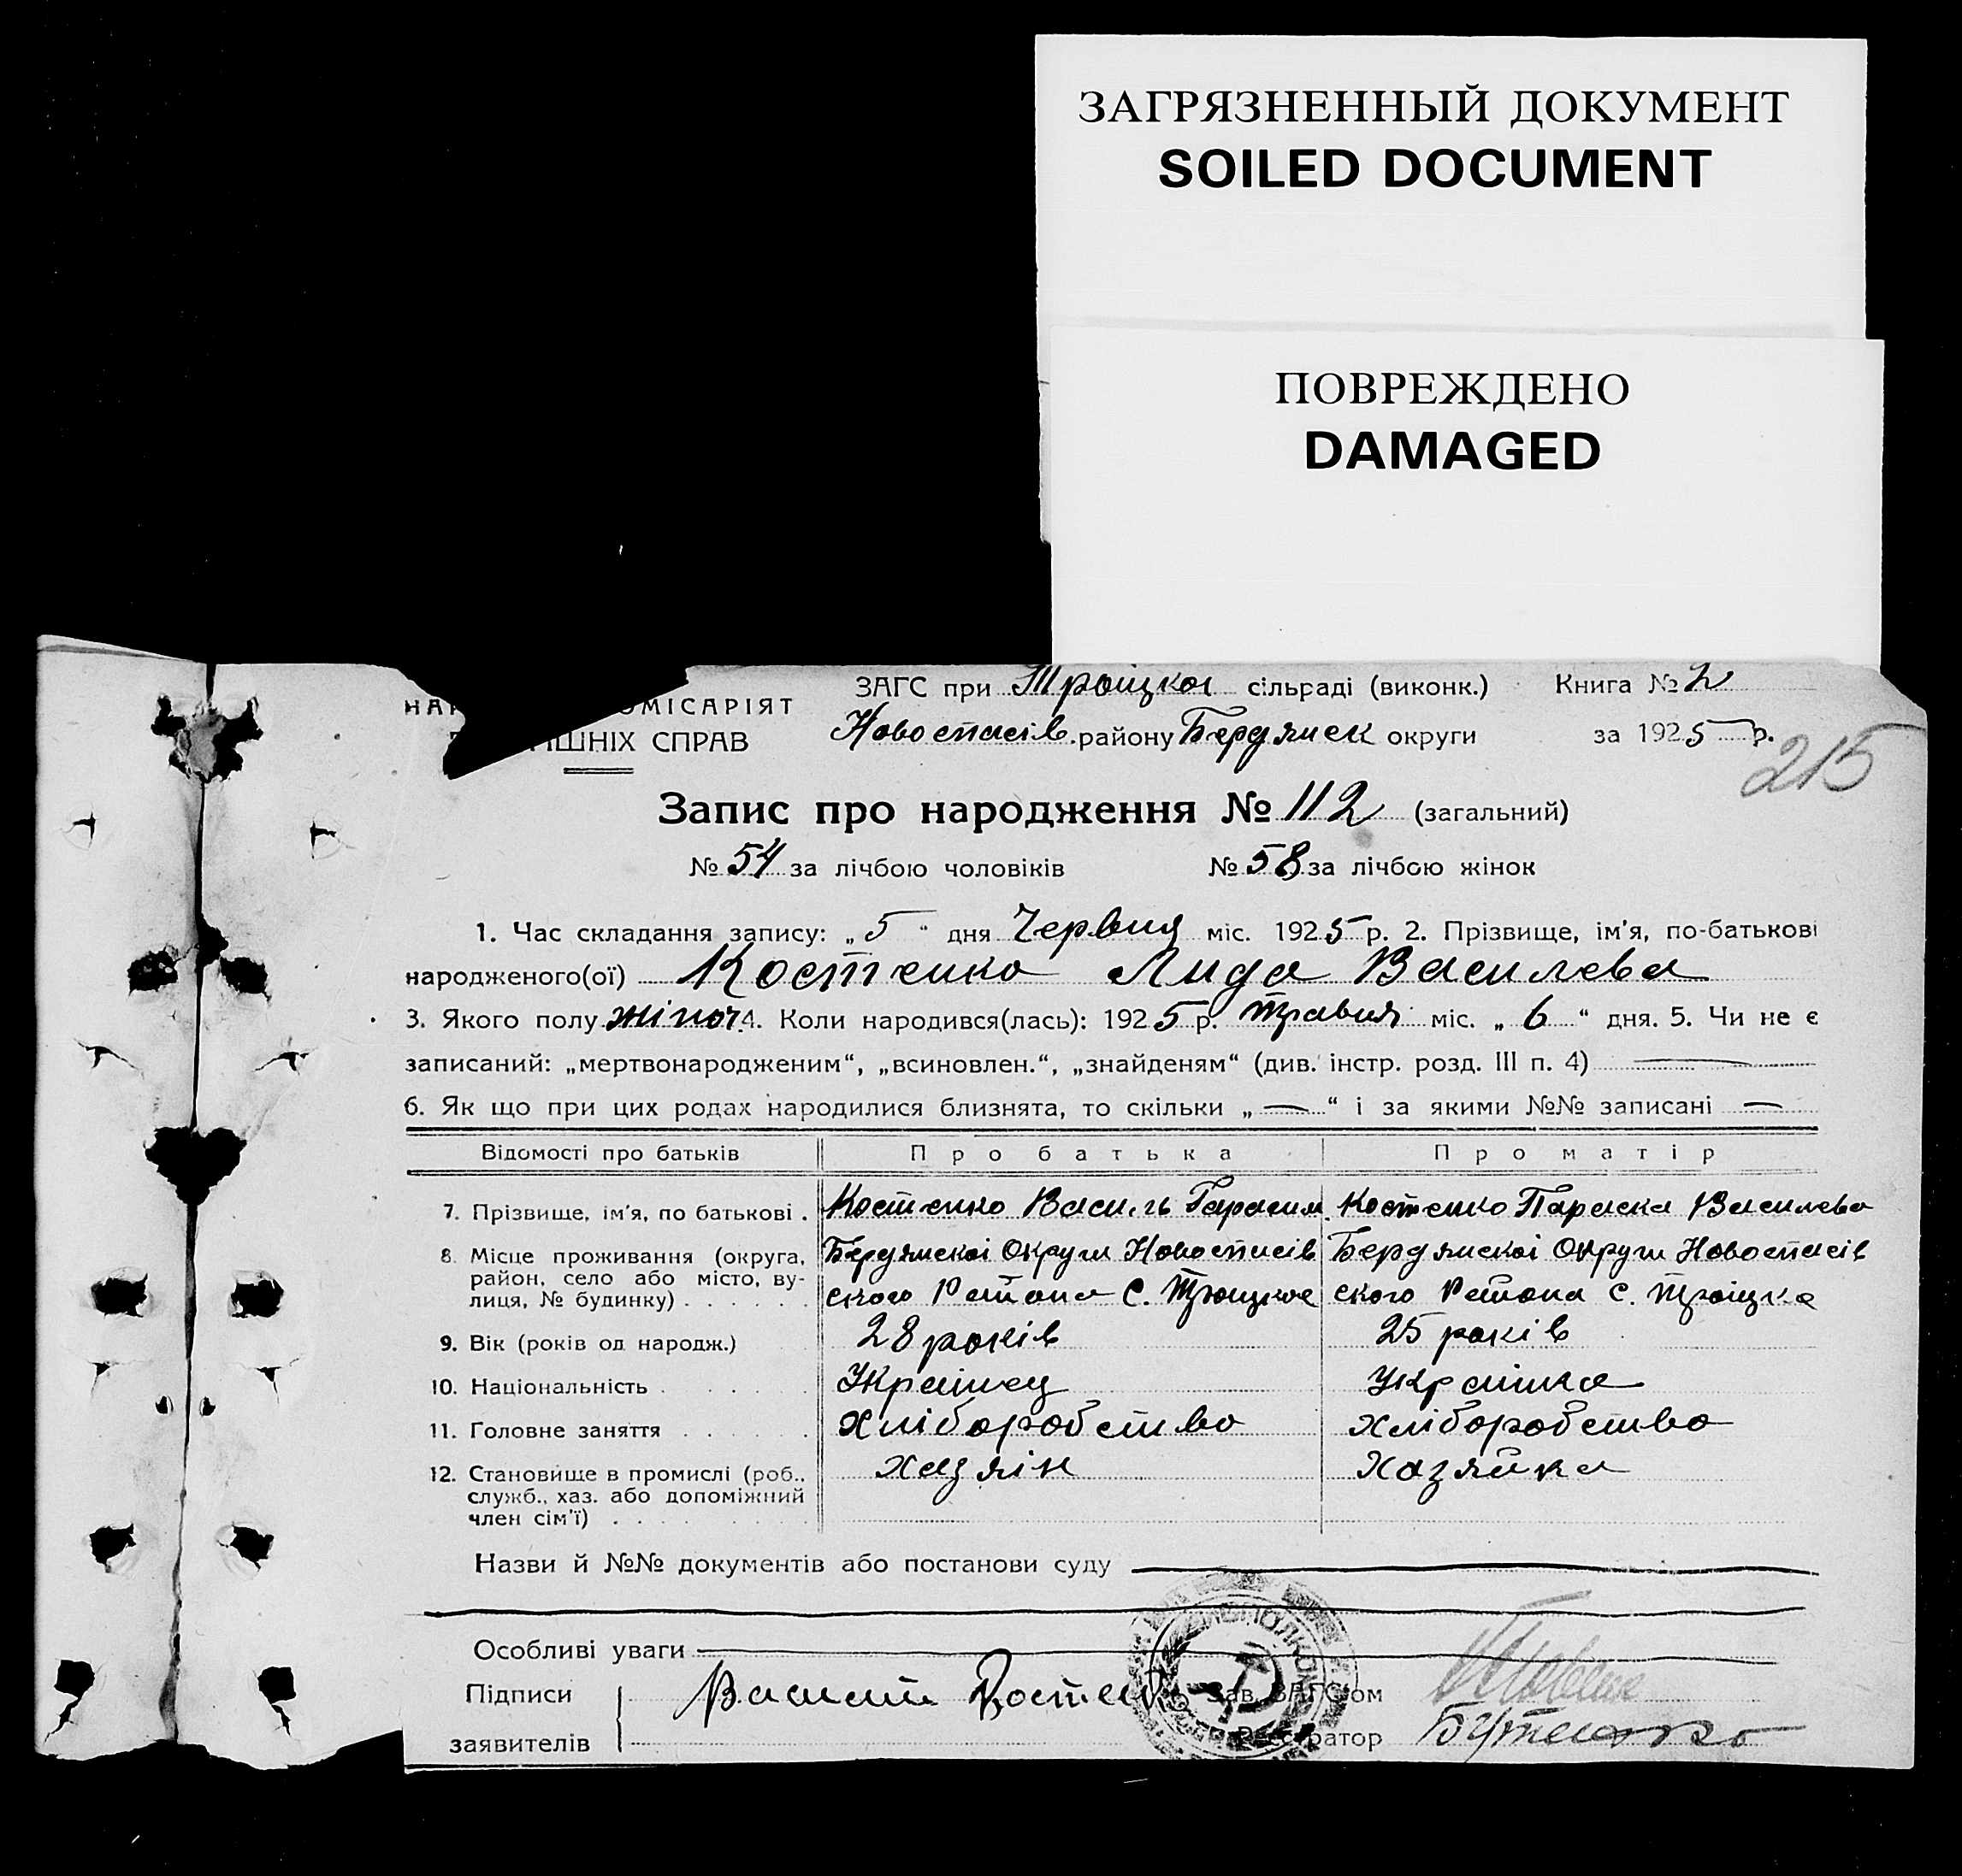 ЗАГРЯЗНЕННЫЙ ДОКУМЕНТ
SOILED DOCUMENT
ПОВРЕЖДЕНО
DAMAGED
НА ОМІСАРІЯТ
ШНІХ СПРАВ
ЗАГС при Троїцкої сільраді (виконк.) Книга № 2
Новоспасів. району Бердянск округи за 1925 р.
215
Запис про народження № 112 (загальний)
№ 54 за лічбою чоловіків № 58 за лічбою жінок
1. Час складання запису: „5“ дня Червня міс. 1925 р. 2. Прізвище, ім'я, по-батькові
народженого(ої) Костенко Лида Василева
3. Якого полу жіноч. 4. Коли народився(лась): 1925 р. травня міс. „6“ дня. 5. Чи не є
записаний: „мертвонародженим“, „всиновлен.“, „знайденям“ (див. інстр. розд. III п. 4) —
6. Як що при цих родах народилися близнята, то скільки „—“ і за якими №№ записані —
Відомості про батьків Про батька Про матір
7. Прізвище, ім'я, по батькові . Костенко Василь Гарасим. Костенко Параска Василева
8. Місце проживання (округа, район, село або місто, вулиця, № будинку) . . . . . .
Бердянскої Округи Новоспасівского Района С. Троицкое
Бердянскої Округи Новоспасівского Района с. Троїцке
9. Вік (років од народж.) 28 років 25 років
10. Національність . . . . . Українец Українка
11. Головне заняття . . . . . . Хліборобство Хліборобство
12. Становище в промислі (роб., служб., хаз. або допоміжний член сім'ї) . . . . . . .
хазяін Хазяйка
Назви й №№ документів або постанови суду
Особливі уваги
Підписи
заявителів
Зав. ЗАГС'ом
Реєстратор Бутенко